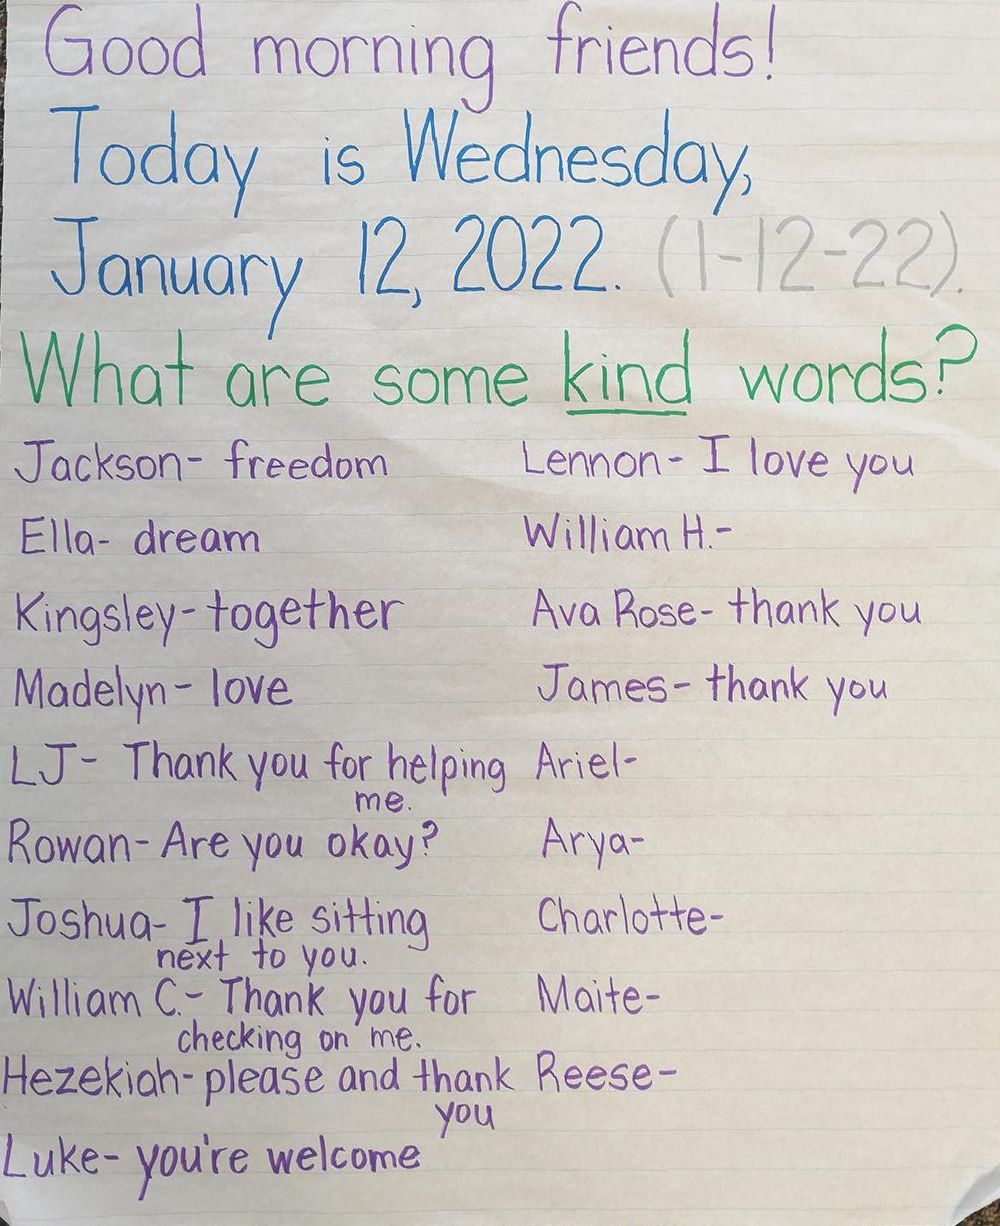 Good morning friends!
Today is Wednesday,
January 12, 2022. (1-12-22).
What are some kind words?
Jackson- freedom
Ella- dream
Kingsley- together
Madelyn- love
LJ- Thank you for helping
me.
Rowan- Are you okay?
Joshua- I like sitting
next to you.
William C.- Thank you for
checking on me.
Hezekiah- please and thank
you
Luke- you're welcome
Lennon- I love you
William H.-
Ava Rose- thank you
James- thank you
Ariel-
Arya-
Charlotte-
Maite-
Reese-